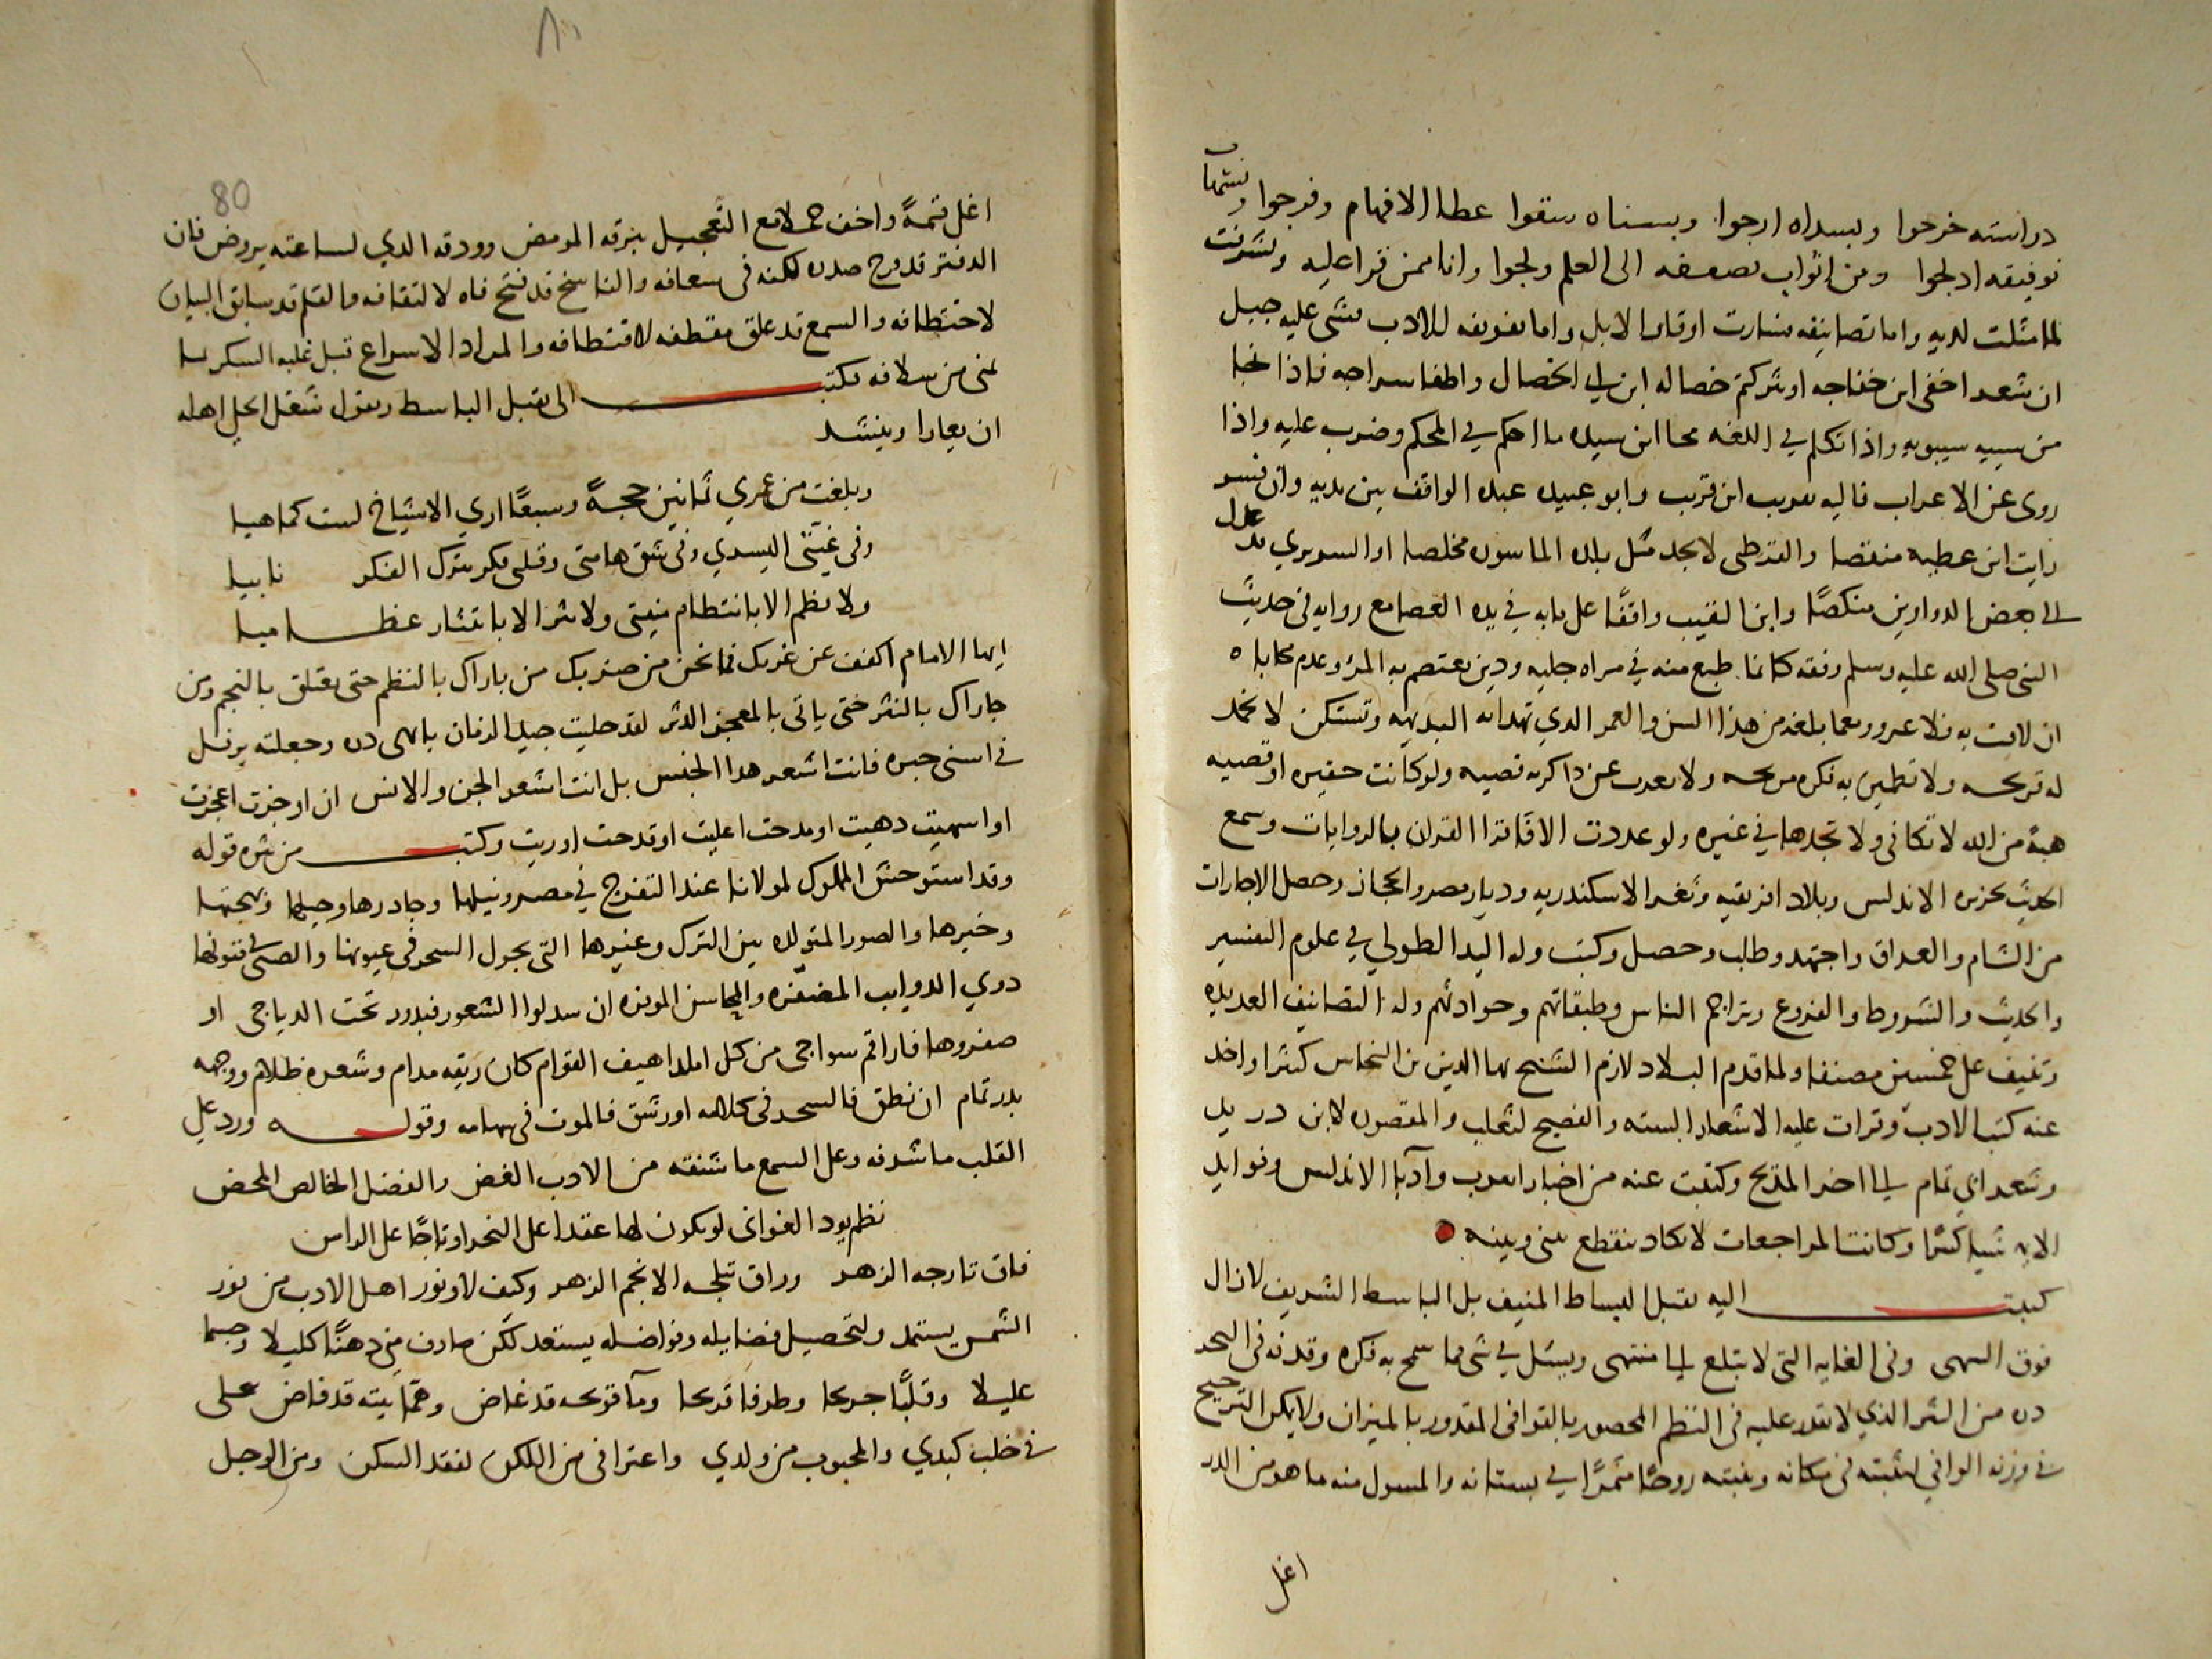 دراسته خرجوا وبسداه ارجوا وبسناه سقوا عطاا الافهام وفرجوا
توفيقه ادلجوا ومن اثواب الى العلم ولجوا وانا ممن قرا عليه وتشرفت
لما مثلت لديه واما تصانيفه فسارت الابل واما للادب فشى عليه جبل
ان شعر اخفى ابن خفاجه او شركتم خصاله ابن ابي الخصال واطفا سراجه فاذا نحا
من سيبه سيبويه واذا تكلم في اللغه محا ابن سيده ما احكم في المحكم وضرب عليه واذا
روى عن الاعراب فاليه يعرب ابن قريب وابو عبيده عبده الواقف بين يديه وان فسر
رايت ابن عطيه منقصا والقرطبى لا يجد مثل مخلصا او السويري
الى بعض الدواوين منكصًا وابن النقيب واقفًا على بابه في يده العصا مع روايه في حديث
النبى صلى الله عليه وسلم وفقه كانما طبع منه في مراه جليه ودين يعتصم به المرؤ وعدم محاباه
ان لاقت به فلا غرو ربما بلغه من هذا السن والعمر الدي تهدا به البديهه وتستكن لا تخمد
له قريحه ولا تطمين به فكره ولا يعرب عن ذاكرته قصيه ولو كانت حقيره او قصيه
هبة من الله لا تكافى ولا تجدها في غيره ولو عددت الافًا قرا القران بالروايات وسمع
الحديث بجزيره الاندلس وبلاد افريقيه وثغر الاسكندريه وديار مصر والحجاز وحصل الاجازات
من الشام والعراق واجتهد وطلب وحصل وكتب وله اليد الطولى في علوم التفسير
والحديث والشروط والفروع وتراجم الناس وطبقاتهم وحوادثهم وله التصانيف العديده
وتنيف على خمسين مصنفا ولما قدم البلاد لازم الشيخ بها الدين بن النحاس كثيرا واخد
عنه كتب الادب وقرات عليه الاشعار السته والفصيح لثعلب والمقصوره لابن دريد
وشعر ابي تمام الى اخر المديح وكتبت عنه من اخبار العرب وآدبا الاندلس وفوايد
شيا كثيرا وكانت المراجعات لا تكاد تنقطع بينى وبينه
كتبت اليه يقبل البساط المنيف بل الباسط الشريف لازال
فوق السهى وفى الغايه التى لا تبلغ الى منتهى ويسئل في شى مما سمح به فكره وقدفه فى البحر
دره من النثر الذي لا يقدر عليه فى النظم المحصور بالقوافى المقدور بالميزان ولا يمكن الترجيح
في وزنه الوافي لنثبته فى مكانه وينبته روضًا مثمرًا في بستانه والمسول منه ما هو من الدر
اغلى
80
اغلى قيمةً واخف لامع التعجيل ببرقه المومض وودقه الدي لساعته يروض فان
الدفتر قد وج صدره لكنه فى سعافه والناسخ قد فتح فاه لالتقافه والقلم قد سابق البيان
لاختطافه والسمع قد علق مقطفه لاقتطافه والمراد الاسراع قبل غلبه السكر
لمنى من سلافه فكتب الى يقبل الباسط ويقول شغل الحلى اهله
ان يعارا وينشد
وبلغت من عمري ثمانين حجةً وسبعًا اري الاشياخ لست كماهيا
وفى هامتى وقلبى فكر يترك الفكر نابيا
ولا نظم الا بانتظام منيتى ولا نثر الا بانتثار عظاميا
ايها الامام اكفف عن غربك فما نحن من ضربك من باراك بالنظم حتى يعتلق بالنجم ومن
جاراك بالنثر حتى ياتى بالمعجز الدثر لقد حليت جيد الزمان بابهى دره وجعلته يرفل
في اسنى حبره فانت اشعر هدا الجنس بل انت اشعر الجن والانس ان اوجزت اعجزت
او اسهبت دهبت او مدحت اعليت او قدحت اوريت وكتب من نثره قوله
وقد استوحش المملوك لمولانا عند التفرج في مصر ونيلها وجادرها وجيلها وبهجتها
وخيرها والصور المتولده بين الترك وغيرها التى يجول السحر فى عيونها والصبى فتونها
دوي الدوايب المضفره والمحاسن الموفره ان سدلوا الشعور فبدور تحت الدياجى او
ضفروها فاراقم سواجى من كل املدا هيف القوام كان ريقه مدام وشعره ظلام ووجهه
بدر تمام ان نطق فالسحر فى كلامه او رشق فالموت فى سهامه وقوله ورد على
القلب ما شرفه وعلى السمع ما شنفه من الادب الغض والفضل الخالص المحض
نظم يود الغوانى لو يكون لها عقدا على النحر او تاجًا على الراس
فاق تارجه الزهر وراق تبلجه الانجم الزهر وكيف لا ونور اهل الادب من نور
الشمس يستمد ولتحصيل فضايله وفواضله يستعد لكن صادف منى دهنًا كليلا وجسما
عليلا وقلبًا جريحا وطرفا قريحا ومآ قريحه قد غاض وهمآ بيته قد فاض على
في خلب كبدي والمحبوب من ولدي واعترانى من اللكن لفقد السكن ومن الوجل